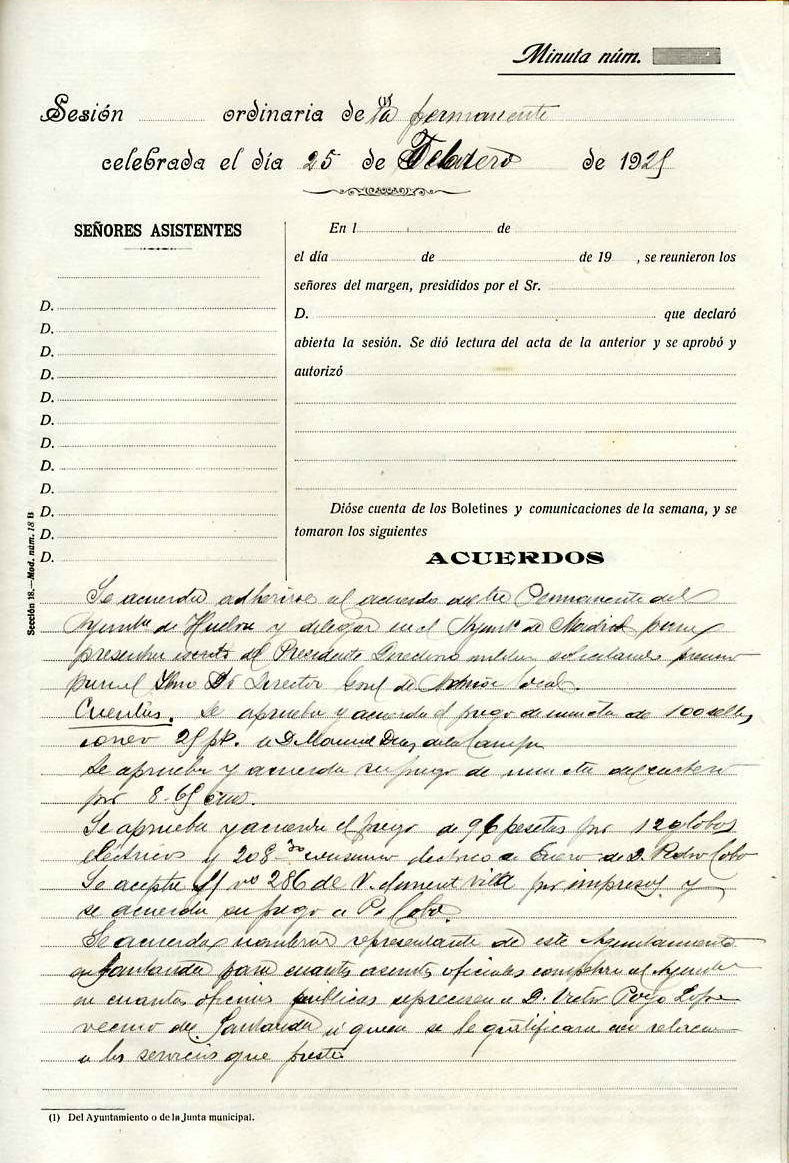 Minuta núm.
Sesión ordinaria de (1) la permanente
celebrada el día 25 de Febrero de 1925
SEÑORES ASISTENTES
D.
D.
D.
D.
D.
D.
D.
D.
D.
D.
D.
D.
En l de
el día de de 19 , se reunieron los
señores del margen, presididos por el Sr.
D. que declaró
abierta la sesión. Se dió lectura del acta de la anterior y se aprobó y
autorizó
Dióse cuenta de los Boletines y comunicaciones de la semana, y se
tomaron los siguientes
ACUERDOS
Se acuerda adherirse al acuerdo de la Permanente del
Ayunte de Huelva y delegar en el Ayunte de Madrid para
presentar escrito al Presidente Directorio militar solicitando
para el Director Gral de Local.
Cuentas. Se aprueba y acuerda el pago de minuta de 100 sellos
correo 25 pts. a D. Manuel Diaz de la Campa
Se aprueba y acuerda su pago de minuta del cartero
por 8-65
Se aprueba y acuerda el pago de 96 pesetas por 12 globos
eléctricos y 208 electrico de Enero de D. Pedro Cobo
Se acepta nº 286 de V. Climent Vila por impresos y
se acuerda su pago a P. Cobo.
Se acuerda nombrar representante de este Ayuntamiento
en Santander para cuantos asuntos oficiales al Ayunte
en cuantas oficinas públicas se precisen a D. Victor Lopez
vecino de Santander a quien se le gratificara con relacion
a los servicios que preste
Sección 18.—Mod. núm. 18 B
(1) Del Ayuntamiento o de la Junta municipal.